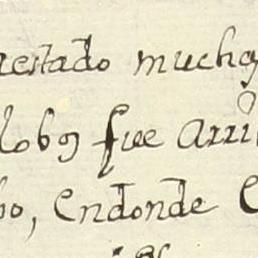 restado mucha
lobos fue arri
ho, endonde